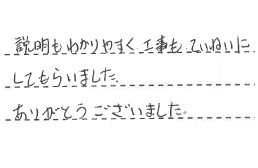 説明もわかりやすく、工事もていねいに
してもらいました。
ありがとうございました。